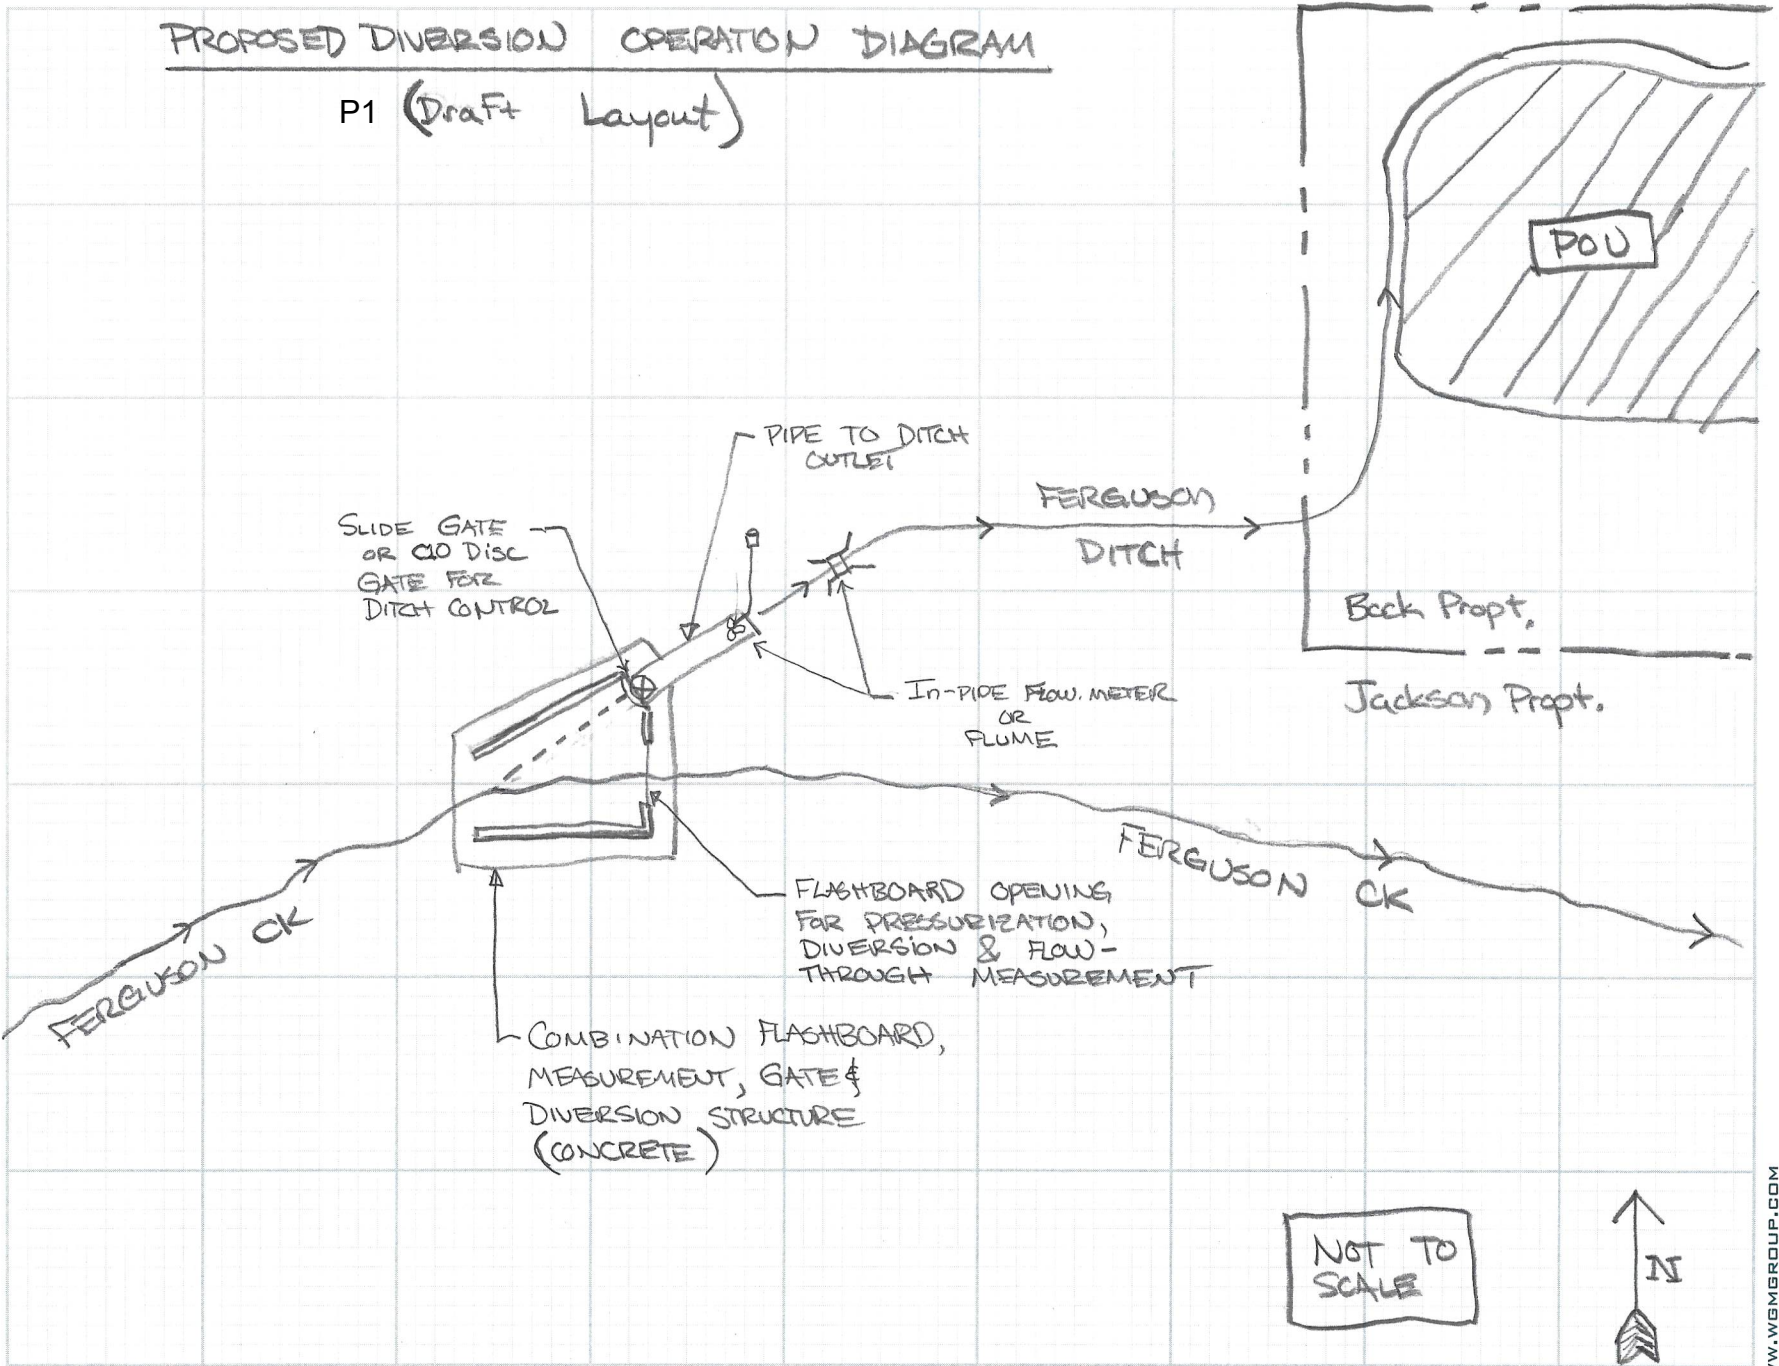 PROPOSED DIVERSION OPERATION DIAGRAM
P1 (Draft Layout)
POU
PIPE TO DITCH
OUTLET
SLIDE GATE
OR C10 DISC
GATE FOR
DITCH CONTROL
FERGUSON
DITCH
Back Propt.
Jackson Propt.
IN-PIPE FLOW METER
OR
FLUME
FERGUSON CK
FERGUSON CK
FLASHBOARD OPENING
FOR PRESSURIZATION,
DIVERSION & FLOW-
THROUGH MEASUREMENT
COMBINATION FLASHBOARD,
MEASUREMENT, GATE &
DIVERSION STRUCTURE
(CONCRETE)
NOT TO
SCALE
N
W.WGMGROUP.COM